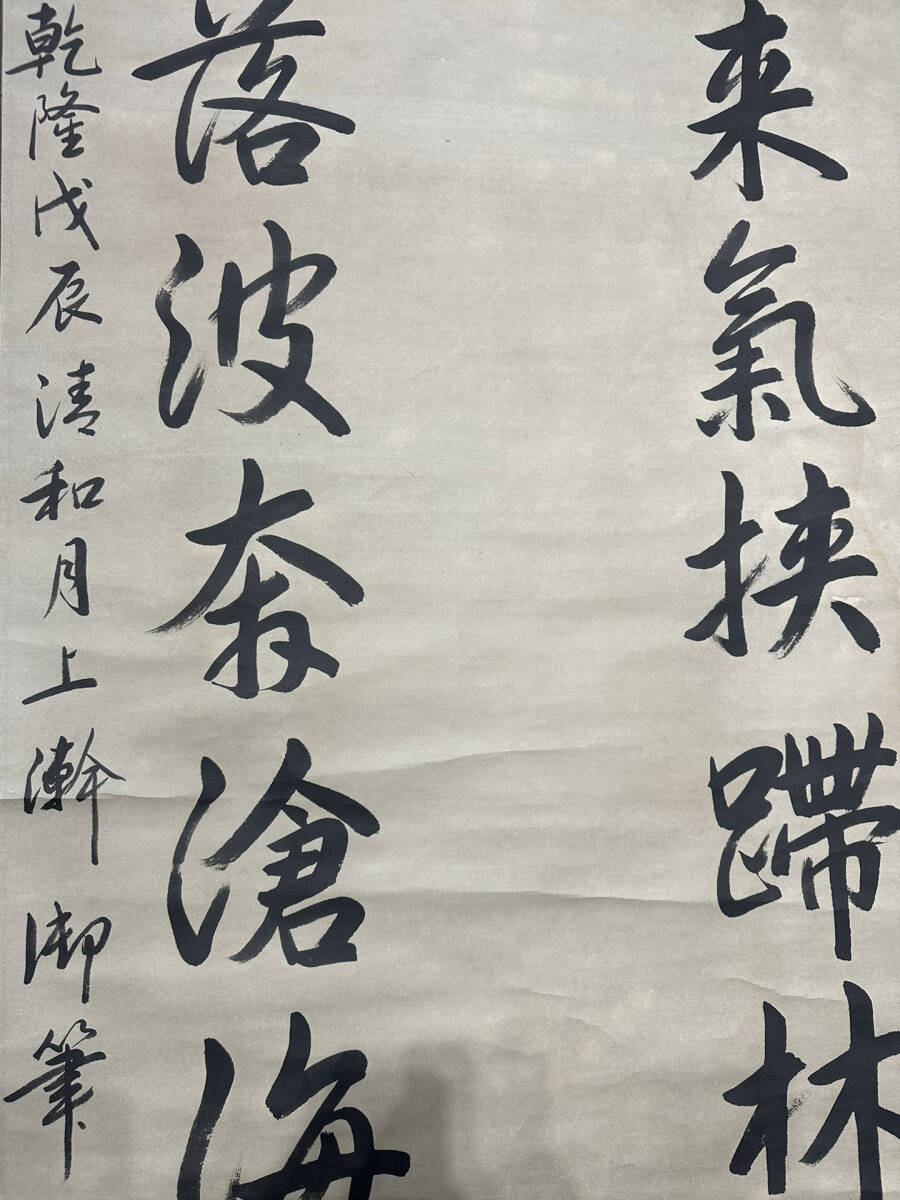 来氣挾蹛林
落波奔滄海
乾隆戊辰清和月上澣御筆